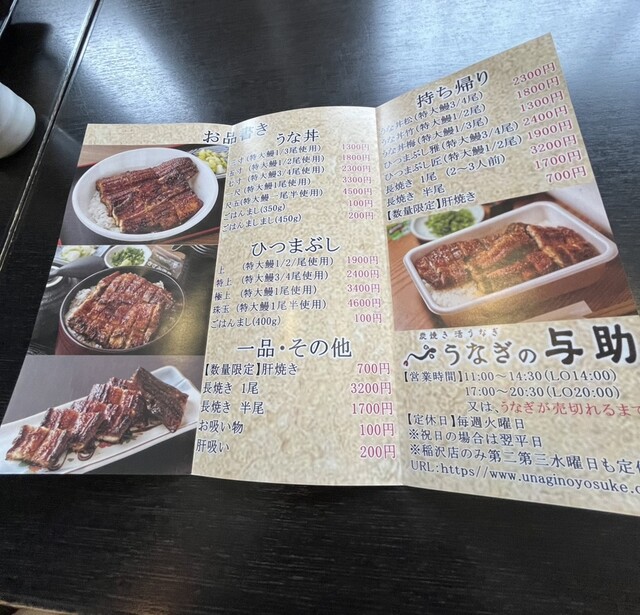 お品書き
うな丼
(特大鰻1/3尾使用) 1300円
(特大鰻1/2尾使用) 1800円
(特大鰻3/4尾使用) 2300円
(特大鰻1尾使用) 3300円
(特大鰻一尾半使用) 4500円
ごはんまし(350g) 100円
ごはんましまし(450g) 200円
ひつまぶし
上 (特大鰻1/2/尾使用) 1900円
特上 (特大鰻3/4尾使用) 2400円
極上 (特大鰻1尾使用) 3400円
珠玉 (特大鰻1尾半使用) 4600円
ごはんまし(400g) 100円
一品・その他
【数量限定】肝焼き 700円
長焼き 1尾 3200円
長焼き 半尾 1700円
お吸い物 100円
肝吸い 200円
持ち帰り
うな丼松(特大鰻3/4尾) 2300円
うな丼竹(特大鰻1/2尾) 1800円
うな丼梅(特大鰻1/3尾) 1300円
ひつまぶし雅(特大鰻3/4尾) 2400円
ひつまぶし匠(特大鰻1/2尾) 1900円
長焼き 1尾 (2〜3人前) 3200円
長焼き 半尾 1700円
【数量限定】肝焼き 700円
炭焼き 活うなぎ
うなぎの 与助
【営業時間】11:00〜14:30(LO14:00)
17:00〜20:30(LO20:00)
又は、うなぎが売切れるま
【定休日】毎週火曜日
※祝日の場合は翌平日
※稲沢店のみ第二第三水曜日も定
URL:https//www.unaginoyosuke.c